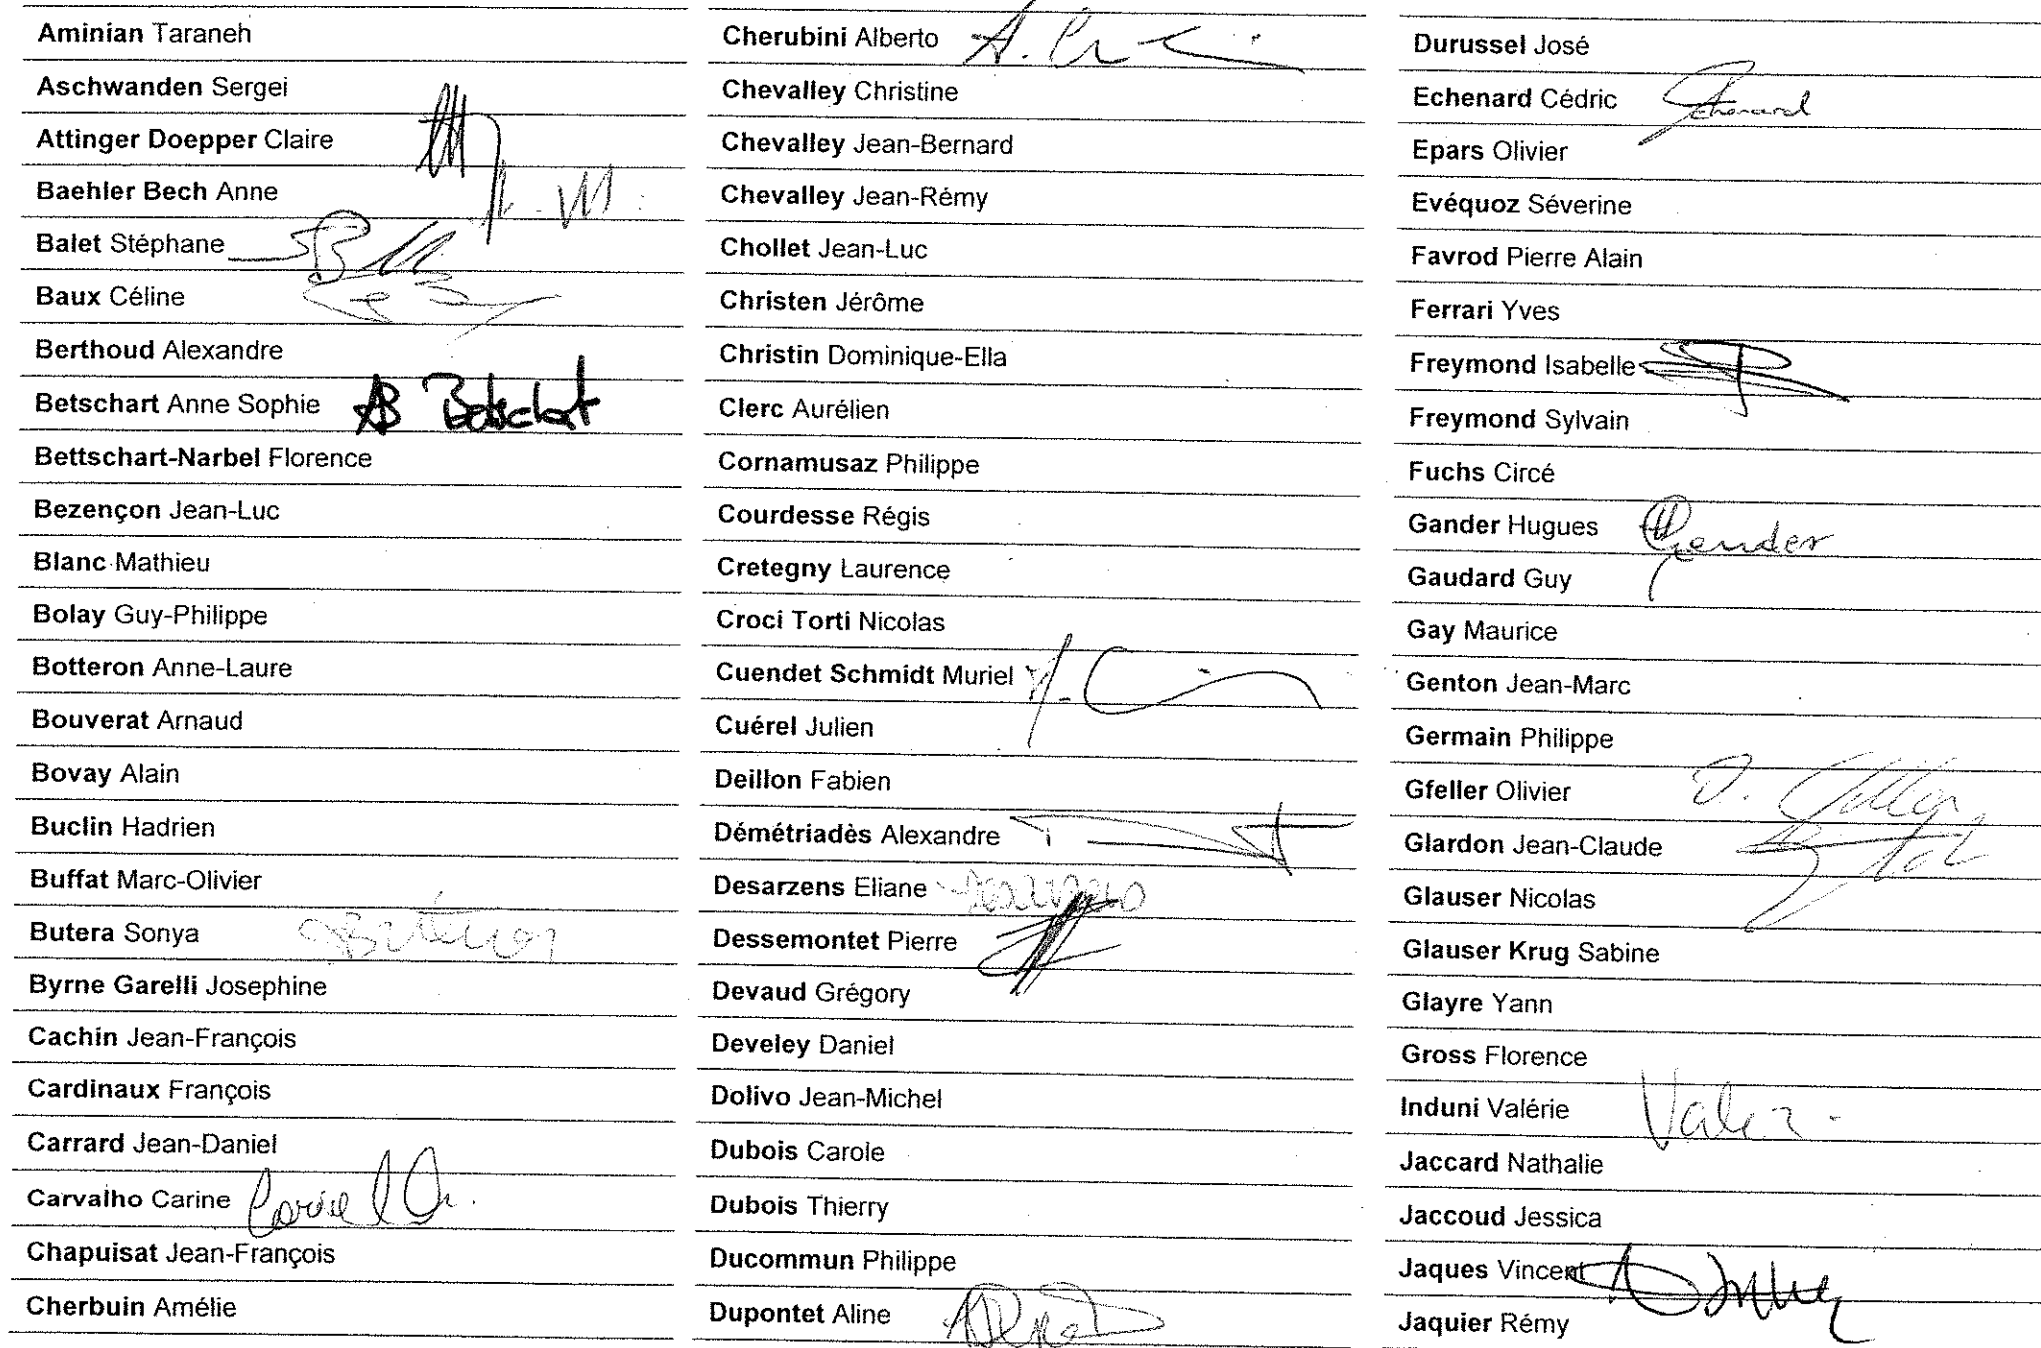 Aminian Taraneh
Aschwanden Sergei
Attinger Doepper Claire
Baehler Bech Anne
Balet Stéphane
Baux Céline
Berthoud Alexandre
Betschart Anne Sophie AB Betschart
Bettschart-Narbel Florence
Bezençon Jean-Luc
Blanc Mathieu
Bolay Guy-Philippe
Botteron Anne-Laure
Bouverat Arnaud
Bovay Alain
Buclin Hadrien
Buffat Marc-Olivier
Butera Sonya
Byrne Garelli Josephine
Cachin Jean-François
Cardinaux François
Carrard Jean-Daniel
Carvalho Carine
Chapuisat Jean-François
Cherbuin Amélie
Cherubini Alberto
Chevalley Christine
Chevalley Jean-Bernard
Chevalley Jean-Rémy
Chollet Jean-Luc
Christen Jérôme
Christin Dominique-Ella
Clerc Aurélien
Cornamusaz Philippe
Courdesse Régis
Cretegny Laurence
Croci Torti Nicolas
Cuendet Schmidt Muriel
Cuérel Julien
Deillon Fabien
Démétriadès Alexandre
Desarzens Eliane
Dessemontet Pierre
Devaud Grégory
Develey Daniel
Dolivo Jean-Michel
Dubois Carole
Dubois Thierry
Ducommun Philippe
Dupontet Aline
Durussel José
Echenard Cédric Echenard
Epars Olivier
Evéquoz Séverine
Favrod Pierre Alain
Ferrari Yves
Freymond Isabelle
Freymond Sylvain
Fuchs Circé
Gander Hugues Gander
Gaudard Guy
Gay Maurice
Genton Jean-Marc
Germain Philippe
Gfeller Olivier O. Gfeller
Glardon Jean-Claude
Glauser Nicolas
Glauser Krug Sabine
Glayre Yann
Gross Florence
Induni Valérie
Jaccard Nathalie
Jaccoud Jessica
Jaques Vincent
Jaquier Rémy